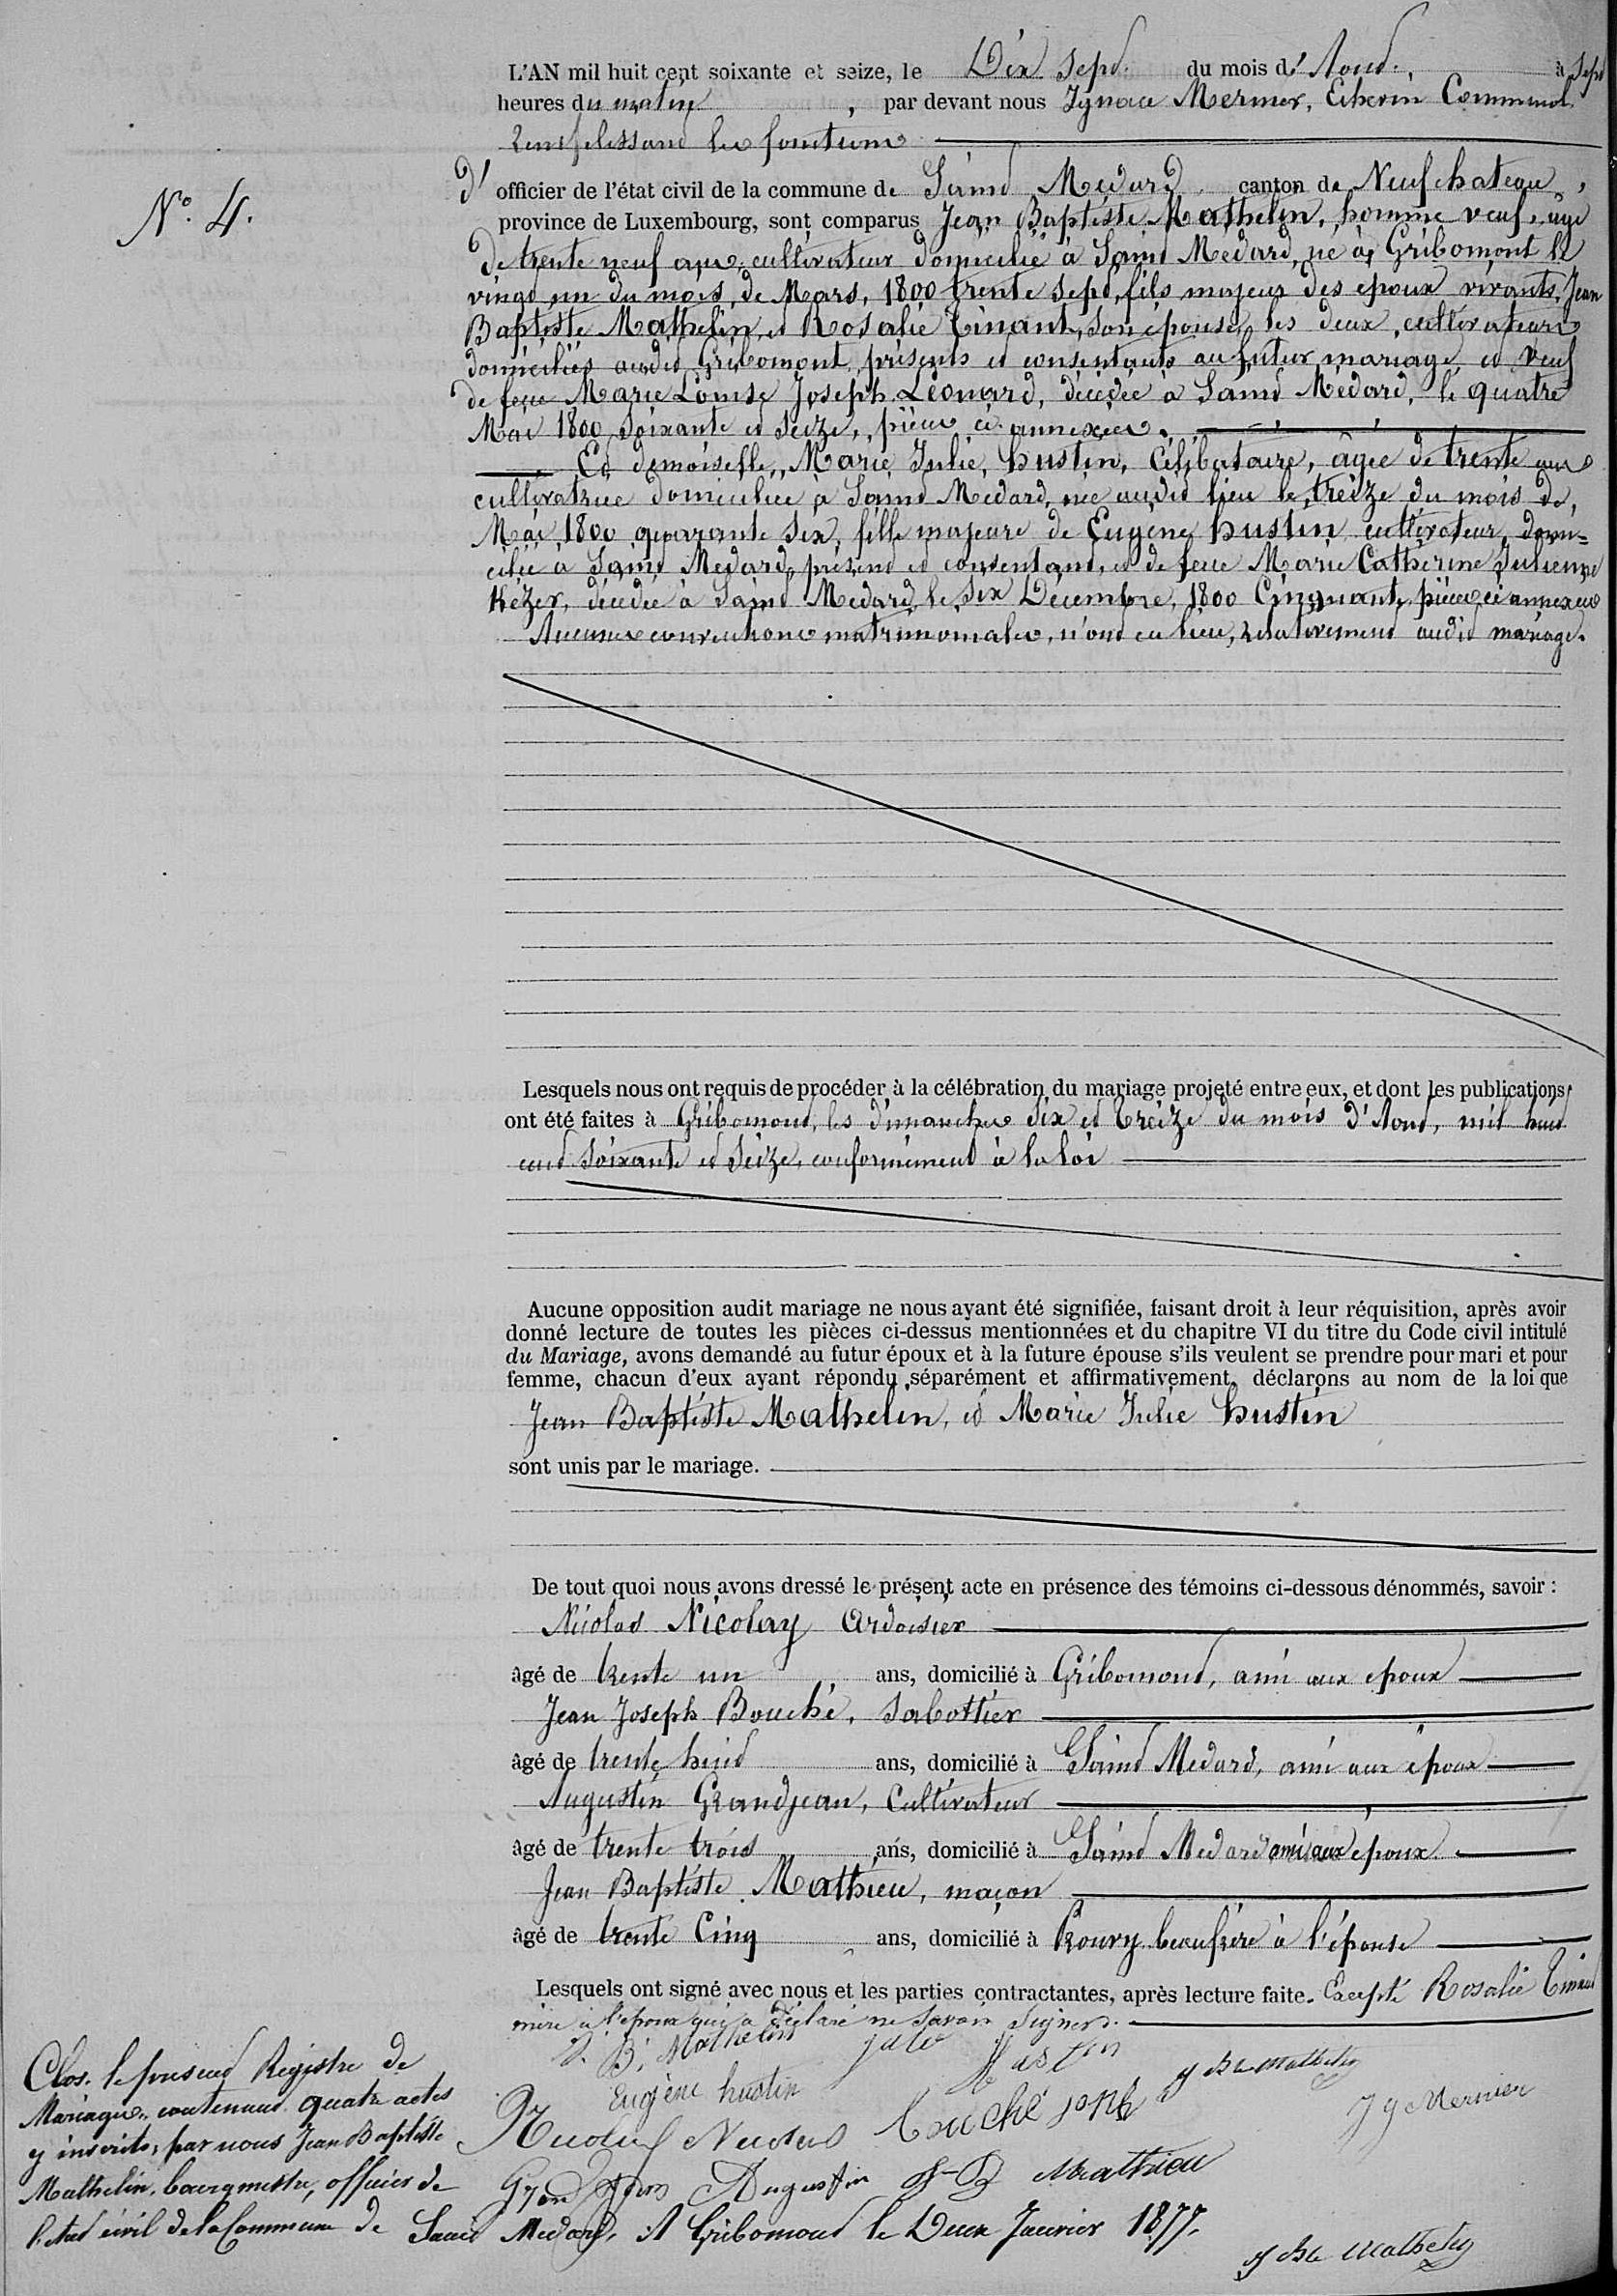 L'AN mil huit cent soixante et seize, le Dix Sept du mois d'Aout à Sept
heures du matin, par devant nous Ignace Mernier, Echevin Communal
remplissant les fonctions
N° 4.
d'officier de l'état civil de la commune de Saint Medard canton de Neufchateau,
province de Luxembourg, sont comparus Jean Baptiste Mathelin, homme veuf, âgé
de trente neuf ans, cultivateur domicilié à Saint Medard, né à Gribomont le
vingt un du mois de Mars, 1800 trente Sept, fils majeur des epoux vivants, Jean
Baptiste Mathelin, et Rosalie Tinant, son épouse, les deux cultivateurs
domiciliés audit Gribomont, présents et consentants au futur mariage, et veuf
de feue Marie Louise Joseph Léonard, décédée à Saint Médard, le quatre
Mai 1800 soixante et Seize, pièces ci annexées.
Et demoiselle, Marie Julie, hustin, Célibataire, âgée de trente ans
cultivatrice domiciliée à Saint Medard, née audit lieu le treize du mois de,
Mai 1800 quarante Six, fille majeure de Eugène hustin cultivateur, domi=
cilié à Saint Medard, présent et consentant, et de feue Marie Catherine Julienne
Kézer, décédée à Saint Medard, le Six Décembre, 1800 Cinquante, pièces ci annexées
Aucunes conventions matrimoniales, n'ont eu lieu, relativement audit mariage.
Lesquels nous ont requis de procéder à la célébration du mariage projeté entre eux, et dont les publications
ont été faites à Gribomont, les dimanches Six et Treize du mois d'Aout, mil huit
cent soixante et Seize, conformément à la loi
Aucune opposition audit mariage ne nous ayant été signifiée, faisant droit à leur réquisition, après avoir
donné lecture de toutes les pièces ci-dessus mentionnées et du chapitre VI du titre du Code civil intitulé
du Mariage, avons demandé au futur époux et à la future épouse s'ils veulent se prendre pour mari et pour
femme, chacun d'eux ayant répondu séparément et affirmativement, déclarons au nom de la loi que
Jean Baptiste Mathelin, et Marie Julie hustin
sont unis par le mariage.
De tout quoi nous avons dressé le présent acte en présence des témoins ci-dessous dénommés, savoir :
Nicolas Nicolay Ardoisier
âgé de trente un ans, domicilié à Gribomont, ami aux epoux
Jean Joseph Bouché, Sabottier
âgé de trente huit ans, domicilié à Saint Medard, ami aux époux
Augustin Grandjean, Cultivateur
âgé de trente trois ans, domicilié à Saint Medard ami aux epoux
Jean Baptiste Mathieu, maçon
âgé de trente Cinq ans, domicilié à Rouvy beaufrère à l'épouse
Lesquels ont signé avec nous et les parties contractantes, après lecture faite. Excepté Rosalie Tinant
mère à l'epoux qui a déclaré ne savoir Signer.
J. B. Mathelin Julie Hustin J Bte Mathelin
Eugène hustin Jg Mernier
Nicolas Bouché Joseph
Grandjean Augustin J-B Mathieu
Clos, le présent Registre de
Mariages, contenant quatre actes
y inscrits, par nous Jean Baptiste
Mathelin, bourgmestre, officier de
l'etat civil de la Commune de Saint Medard, A Gribomont le Deux Janvier 1877.
J Bte Mathelin